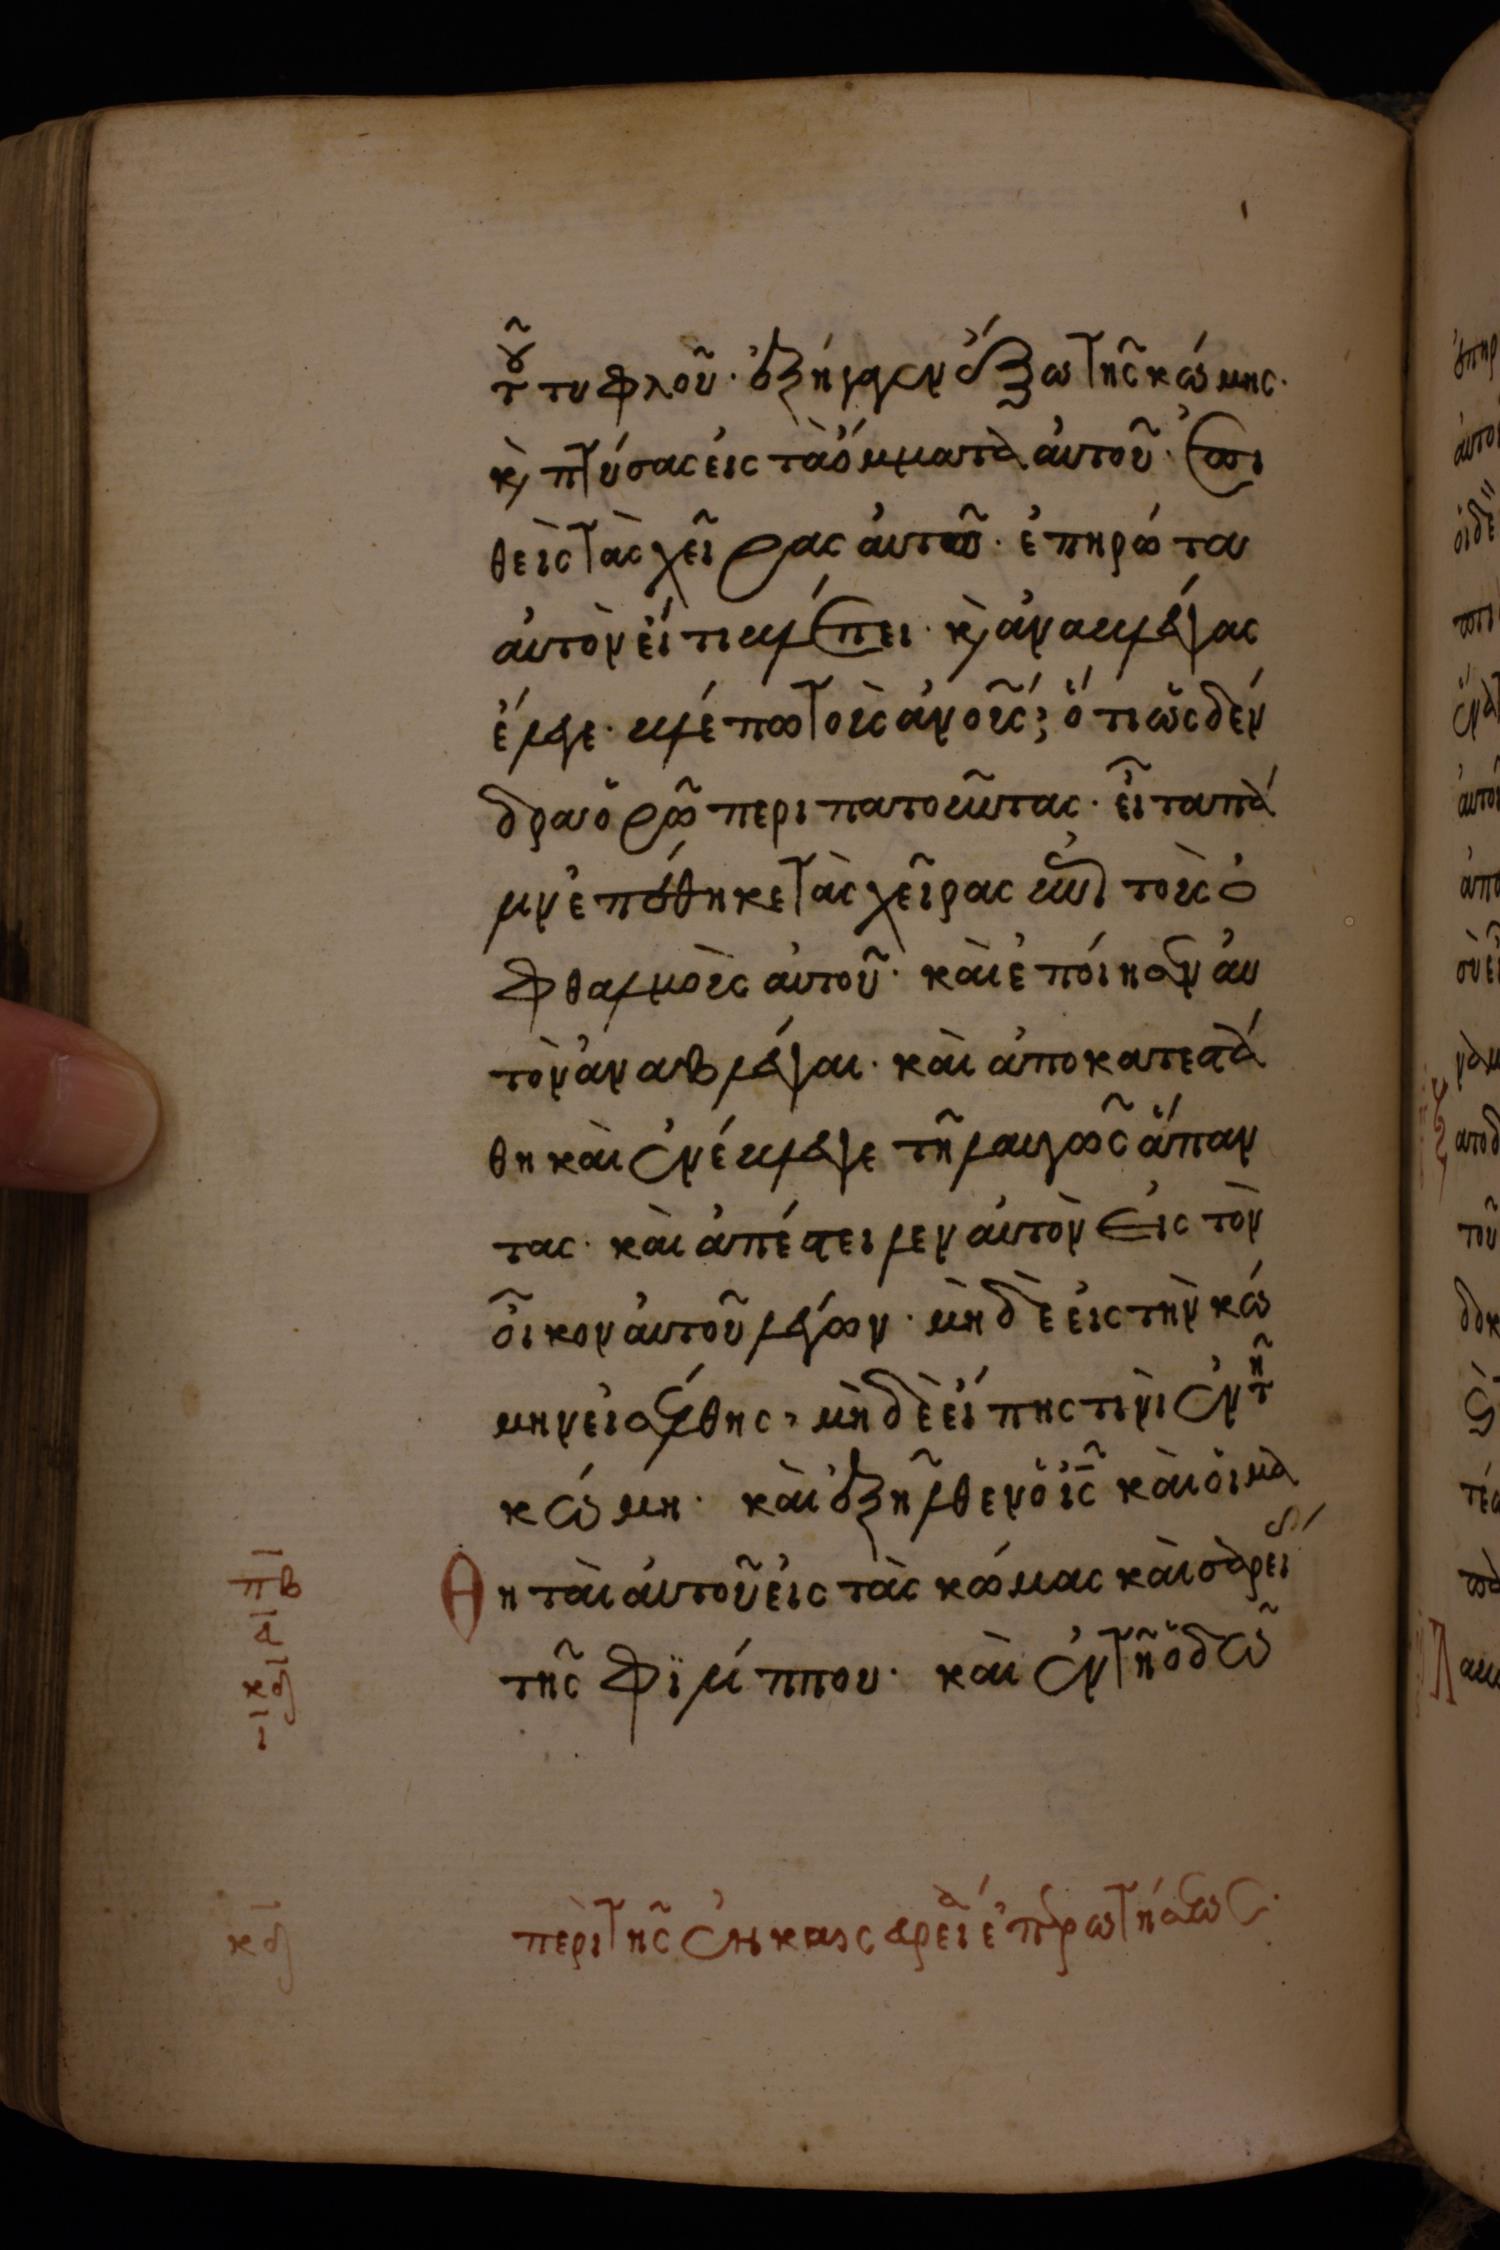 τοῦ τυφλοῦ· ἐξήγαγεν ἔξω τῆς κώμης·
κ̀ πτύσας εἰς τὰ ὄμματα αὐτοῦ· ἐπι
θεὶς τὰς χεῖρας αὐτοῦ· ἐπηρώτα
αὐτὸν εἴ τι βλέπει· κ̀ ἀναβλέψας
ἔλεγε· βλέπω τοὺς ἀνοῦς· ὅτι ὡς δέν
δρα ὁρῶ περιπατοῦντας· εἶτα πά
λιν ἐπέθηκε τὰς χεῖρας ἐπὶ τοὺς ὀ
φθαλμοὺς αὐτοῦ· καὶ ἐποίησεν αὐ
τὸν ἀναβλέψαι· καὶ ἀποκατεστά
θη καὶ ἐνέβλεψε τηλαυγῶς ἅπαν
τας· καὶ ἀπέστειλεν αὐτὸν εἰς τὸν
οἶκον αὐτοῦ λέγων· μὴ δὲ εἰς τὴν κώ
μην εἰσέλθης, μὴ δὲ εἴπης τινὶ ἐν τῆ
κώμη· καὶ ἐξῆλθεν ὁ ις καὶ οἱ μα
θηταὶ αὐτοῦ εἰς τὰς κώμας καισαρεί
τῆς φιλίππου· καὶ ἐν τῆ ὁδῶ
πβ
α
κδ
περὶ τῆς ἐν καισαρεία ἐπερωτήσεως·
κδ